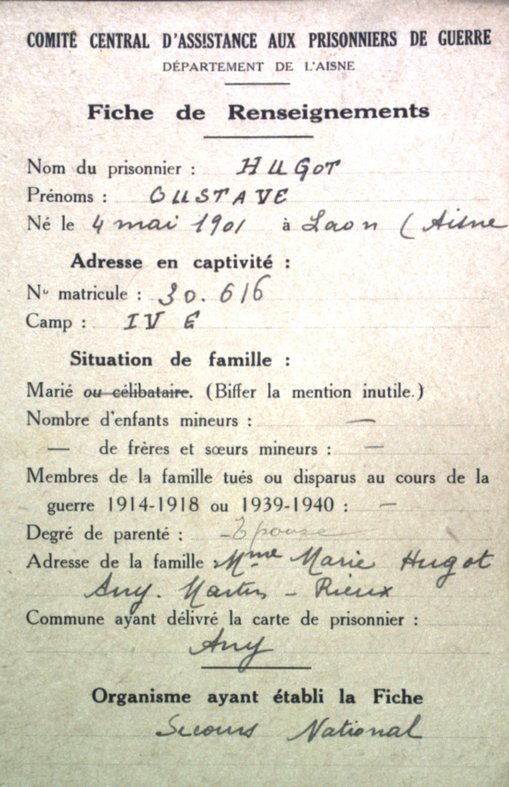 COMITÉ CENTRAL D'ASSISTANCE AUX PRISONNIERS DE GUERRE
DÉPARTEMENT DE L'AISNE
Fiche de Renseignements
Nom du prisonnier : HUGOT
Prénoms : GUSTAVE
Né le 4 mai 1901 à Laon (Aisne
Adresse en captivité :
No matricule : 30.616
Camp : IV G
Situation de famille :
Marié ou célibataire. (Biffer la mention inutile.)
Nombre d'enfants mineurs : —
— de frères et sœurs mineurs : —
Membres de la famille tués ou disparus au cours de la
guerre 1914-1918 ou 1939-1940 : —
Degré de parenté : - Epouse
Adresse de la famille : Mme Marie Hugot
Any. Martin - Rieux
Commune ayant délivré la carte de prisonnier :
Any
Organisme ayant établi la Fiche
Secours National